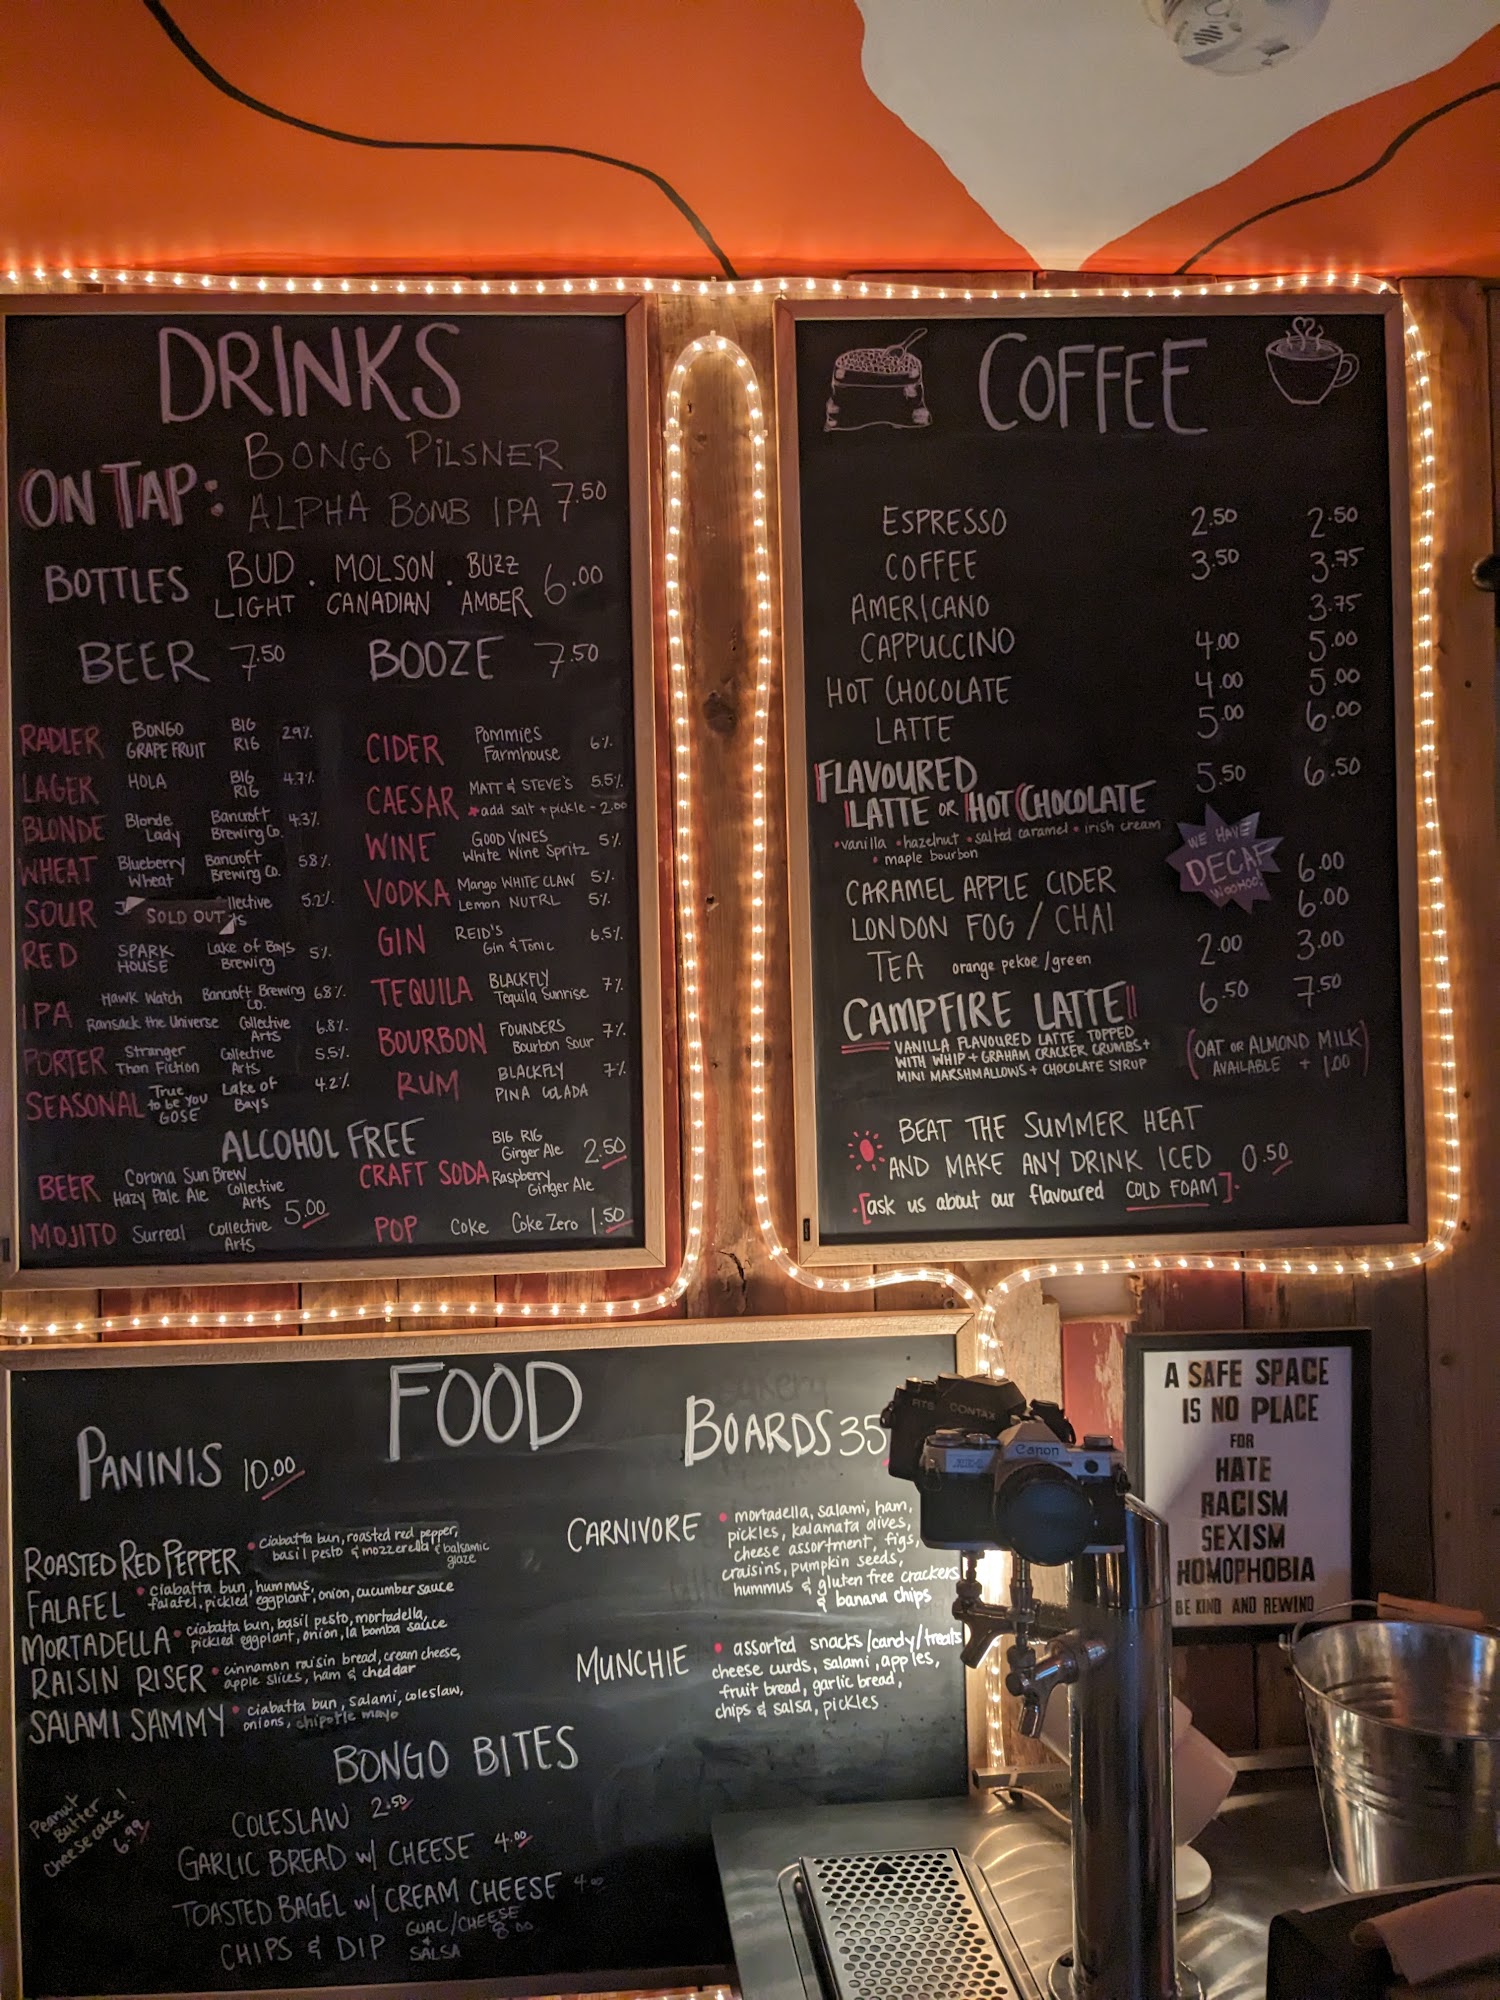 DRINKS
ON TAP: BONGO PILSNER
ALPHA BOMB IPA 7.50
BOTTLES BUD LIGHT . MOLSON CANADIAN . BUZZ AMBER 6.00
BEER 7.50
RADLER BONGO GRAPEFRUIT BIG RIG 2.9%
LAGER HOLA BIG RIG 4.7%
BLONDE Blonde Lady Bancroft Brewing Co. 4.3%
WHEAT Blueberry Wheat Bancroft Brewing Co. 5.8%
SOUR SOLD OUT 5.2%
RED SPARK HOUSE Lake of Bays Brewing 5%
IPA Hawk Watch Bancroft Brewing Co. 6.8%
Ransack the Universe Collective Arts 6.8%
PORTER Stranger Than Fiction Collective Arts 5.5%
SEASONAL True to be you GOSE Lake of Bays 4.2%
BOOZE 7.50
CIDER Pommies Farmhouse 6%
CAESAR MATT & STEVE'S 5.5%
*add salt + pickle - 2.00
WINE GOOD VINES White Wine Spritz 5%
VODKA Mango WHITE CLAW 5%
Lemon NUTRL 5%
GIN REID'S Gin & Tonic 6.5%
TEQUILA BLACKFLY Tequila Sunrise 7%
BOURBON FOUNDERS Bourbon Sour 7%
RUM BLACKFLY PINA COLADA 7%
ALCOHOL FREE
BEER Corona Sun Brew
Hazy Pale Ale Collective Arts 5.00
MOJITO Surreal Collective Arts
CRAFT SODA BIG RIG Ginger Ale 2.50
Raspberry Ginger Ale
POP Coke Coke Zero 1.50
COFFEE
ESPRESSO 2.50 2.50
COFFEE 3.50 3.75
AMERICANO 3.75
CAPPUCCINO 4.00 5.00
HOT CHOCOLATE 4.00 5.00
LATTE 5.00 6.00
FLAVOURED 5.50 6.50
LATTE OR HOT CHOCOLATE
• vanilla • hazelnut • salted caramel • irish cream
• maple bourbon
WE HAVE
DECAF
WOOHOO!
CARAMEL APPLE CIDER 6.00
LONDON FOG / CHAI 6.00
TEA orange pekoe/green 2.00 3.00
CAMPFIRE LATTE 6.50 7.50
VANILLA FLAVOURED LATTE TOPPED
WITH WHIP + GRAHAM CRACKER CRUMBS +
MINI MARSHMALLOWS + CHOCOLATE SYRUP
(OAT OR ALMOND MILK
AVAILABLE + 1.00)
BEAT THE SUMMER HEAT
AND MAKE ANY DRINK ICED 0.50
[ask us about our flavoured COLD FOAM].
FOOD
PANINIS 10.00
ROASTED RED PEPPER • ciabatta bun, roasted red pepper,
basil pesto & mozzerella & balsamic
glaze
FALAFEL • ciabatta bun, hummus,
falafel, pickled eggplant, onion, cucumber sauce
MORTADELLA • ciabatta bun, basil pesto, mortadella,
pickled eggplant, onion, la bomba sauce
RAISIN RISER • cinnamon raisin bread, cream cheese,
apple slices, ham & cheddar
SALAMI SAMMY • ciabatta bun, salami, coleslaw,
onions, chipotle mayo
BOARDS 35
CARNIVORE • mortadella, salami, ham,
pickles, kalamata olives,
cheese assortment, figs,
craisins, pumpkin seeds,
hummus & gluten free crackers
& banana chips
MUNCHIE • assorted snacks/candy/treats
cheese curds, salami, apples,
fruit bread, garlic bread,
chips & salsa, pickles
BONGO BITES
COLESLAW 2.50
GARLIC BREAD w/ CHEESE 4.00
TOASTED BAGEL w/ CREAM CHEESE 4.00
CHIPS & DIP GUAC/CHEESE 8.00
& SALSA
Peanut
Butter
Cheesecake!
6.99
RTS CONTAX
Canon
A SAFE SPACE
IS NO PLACE
FOR
HATE
RACISM
SEXISM
HOMOPHOBIA
BE KIND AND REWIND